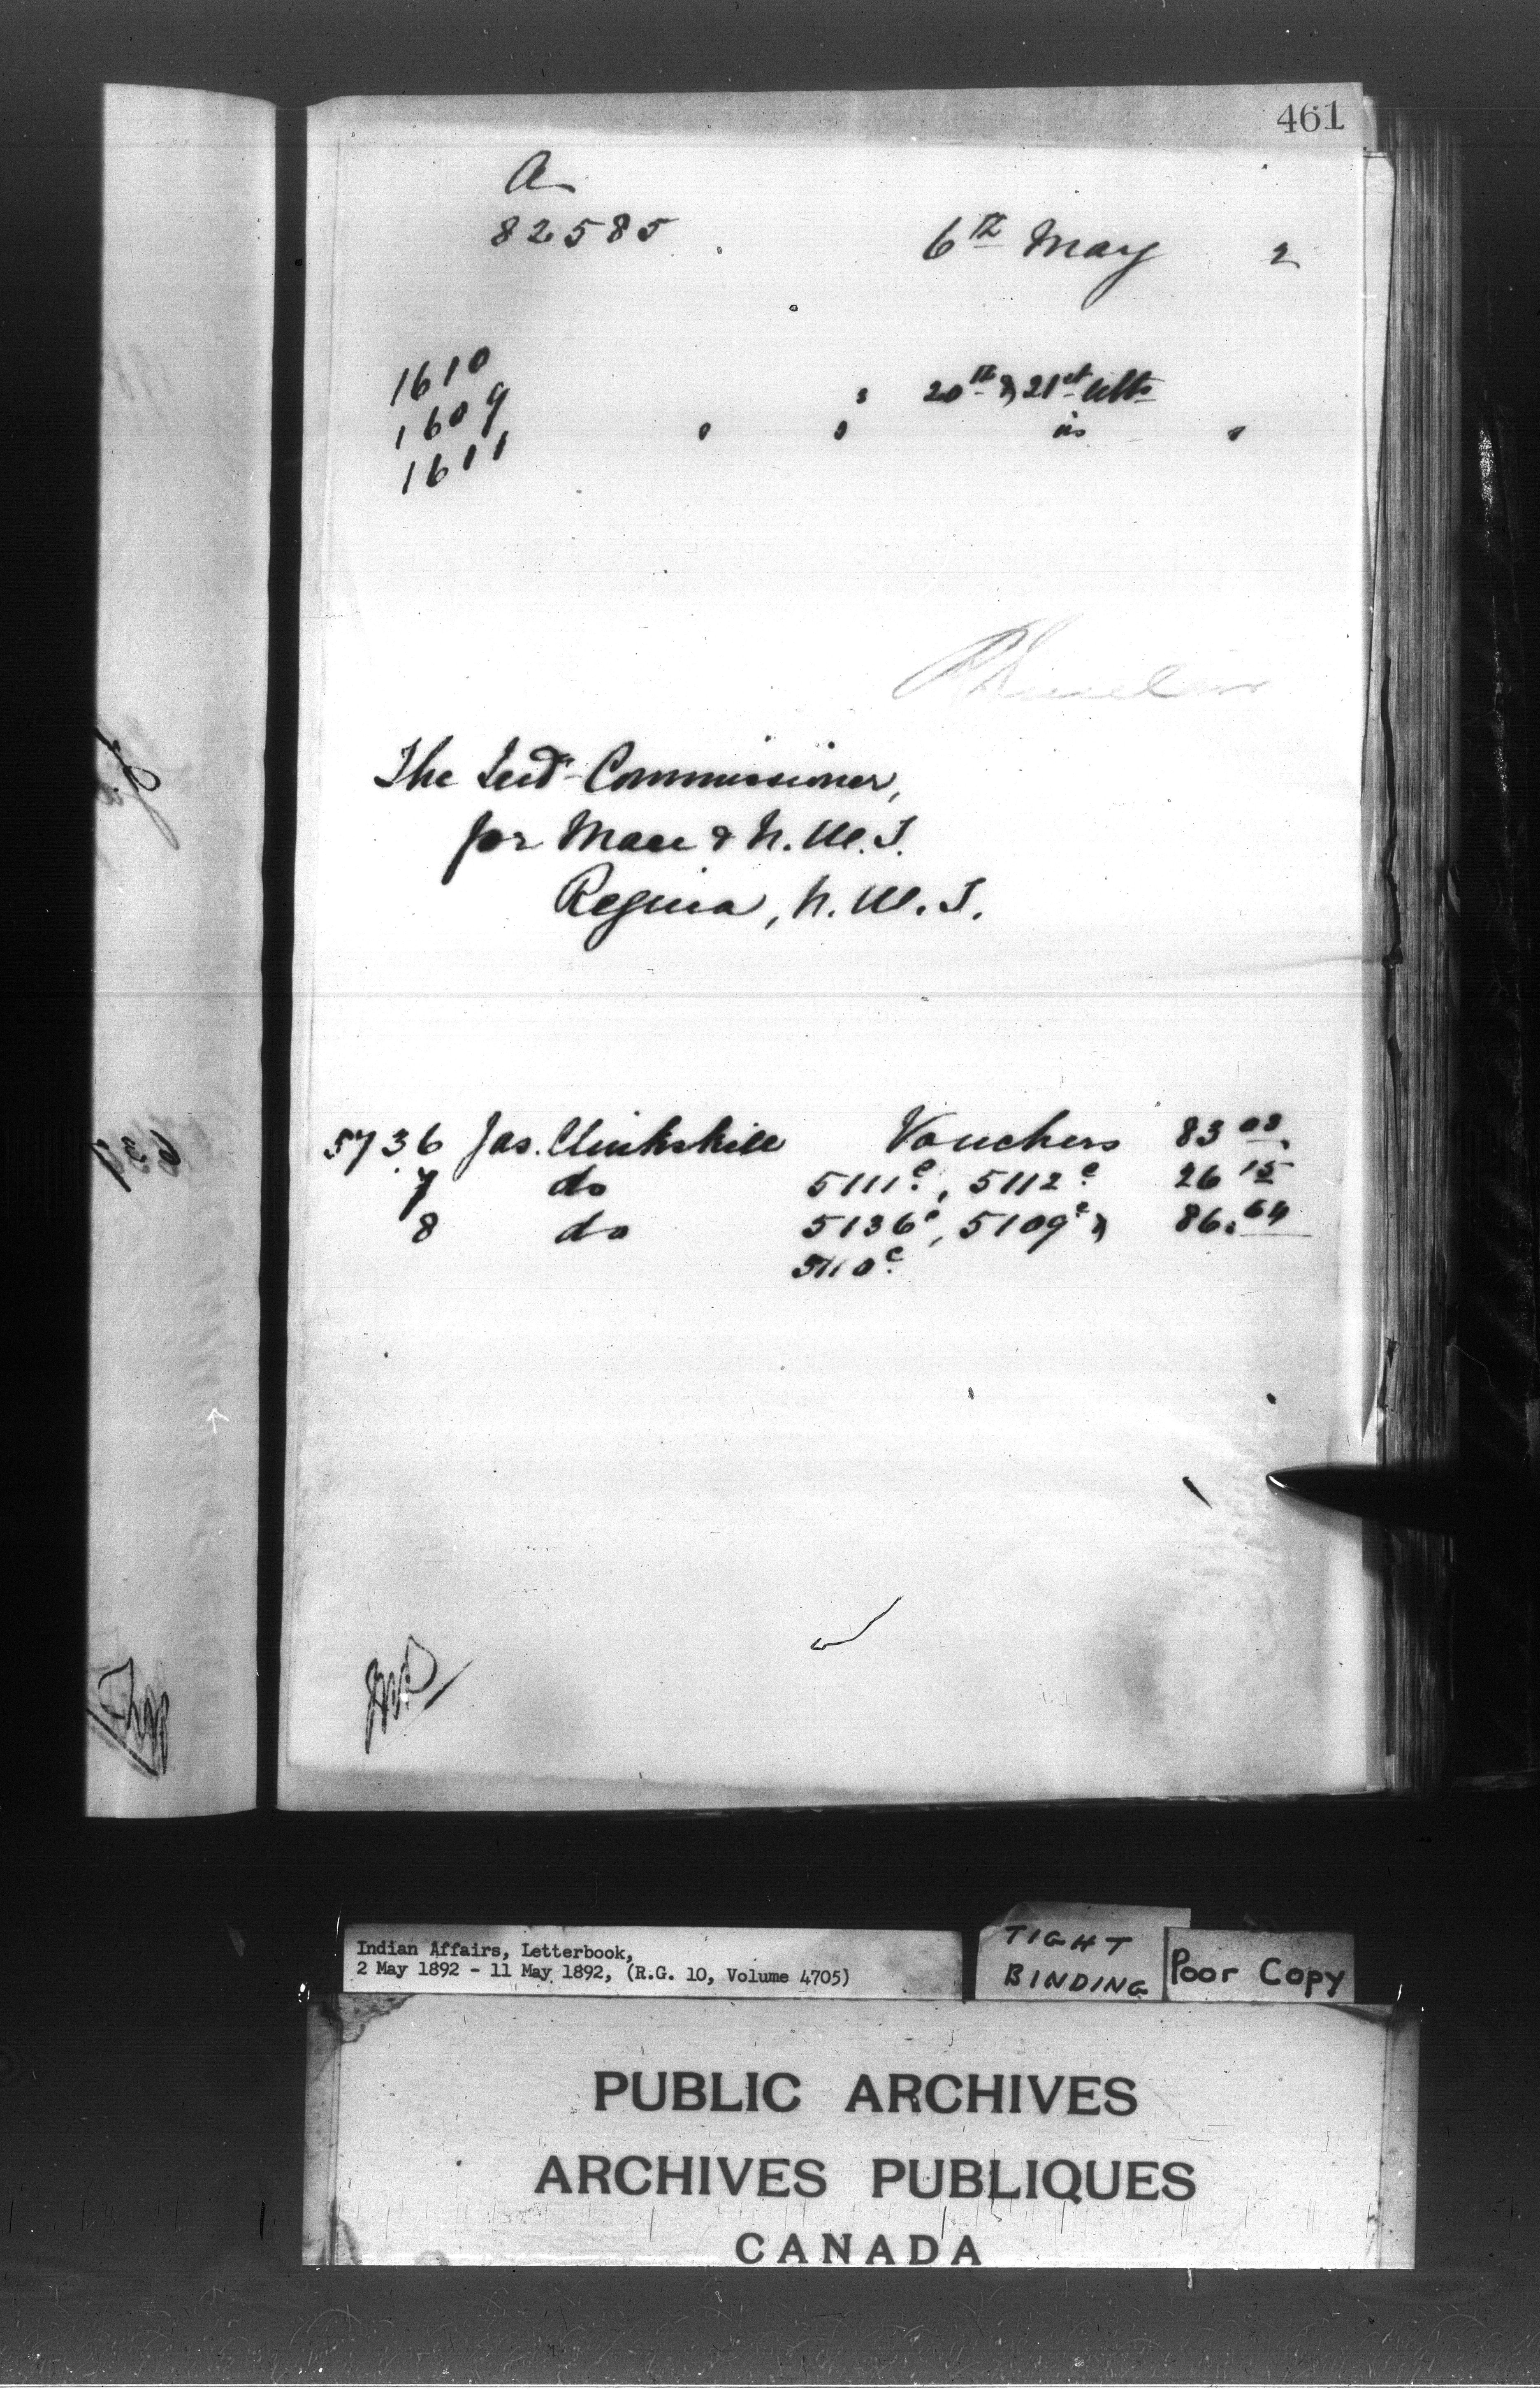 461
A
82585
6th May 2
1610
1609
1611
20th & 21st ulto
is
The Ind Commissioner,
for Man & N.W.T.
Regina, N.W.T.
5736 Jas. Clinkskill Vouchers 83 03
7 do 5111c, 5112c 26 15
8 do 5136c, 5109c & 86.64
5110c
Indian Affairs, Letterbook,
2 May 1892 - 11 May 1892, (R.G. 10, Volume 4705)
TIGHT
BINDING
Poor Copy
PUBLIC ARCHIVES
ARCHIVES PUBLIQUES
CANADA